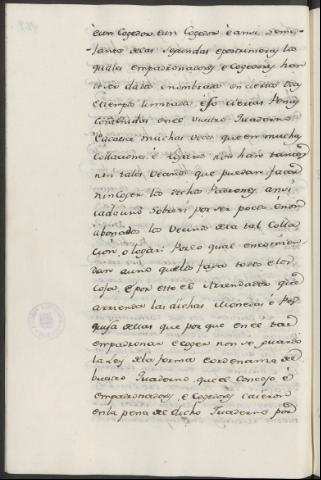 é un Cogedor, é un Cogedor é ansi seme-
jante de las segundas e postrimeras, los
quales empadronadores, e Cogedores han
de ser dados é nombrados en cierto dia,
é tiempo limitado, é so ciertas Penas
contenidas en ese vuestro Quaderno
é acaece muchas veces que en muchas
Collaciones é Lugares non han tantos
nin tales vecinos que puedan facer
nin Coger los dichos Padrones ansi
cada uno sobre si por ser pocos é non
abonados los vecinos de la tal Colla-
ción, ó logar: Por lo qual encomien-
dan a uno que les faga todo e lo
Coja. é por esto el Arrendador que
arrienda las dichas Monedas é Pes-
quisa dellas que porque en el dar
empadronar é coger non se guardo
la Ley de la forma é ordenanza del
vuestro Quaderno, que el Concejo, é
empadronadores, é Cogedores caieron
en la pena del dicho Quaderno por